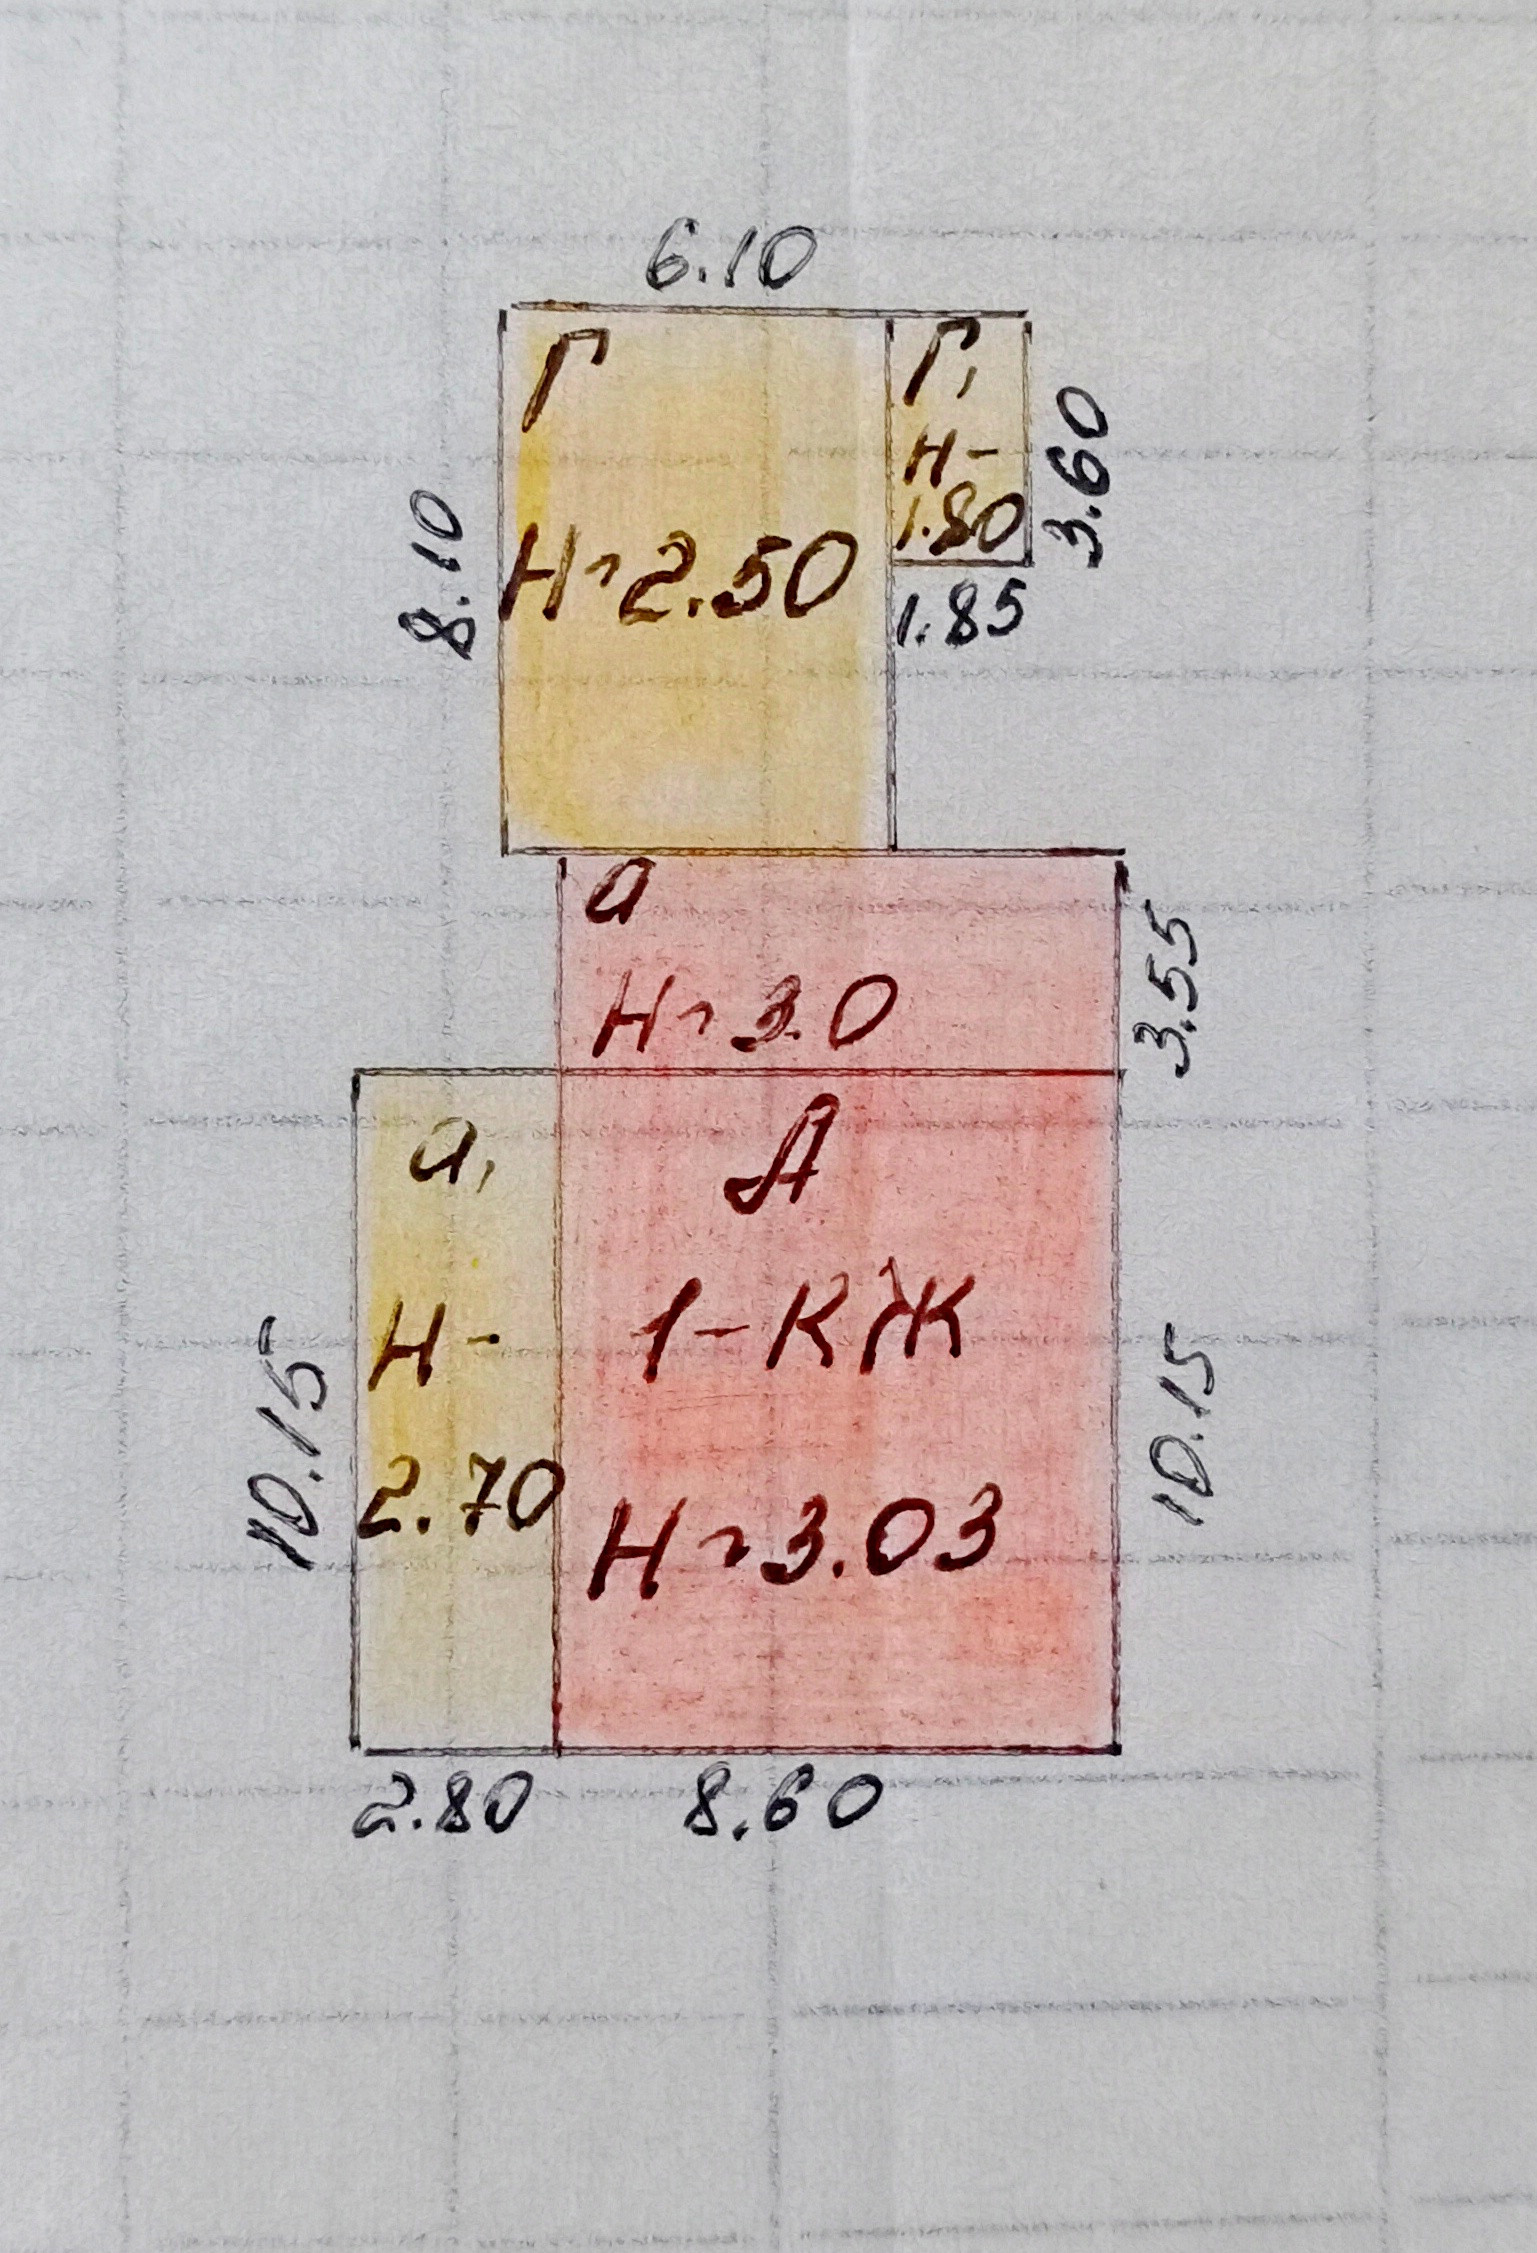 6.10
Г
Г,
Н-
1.80
3.60
8.10
Н-2.50
1.85
а
Н-3.0
3.55
а,
Н-
2.70
А
1-КЖ
Н-3.03
10.15
10.15
2.80
8.60